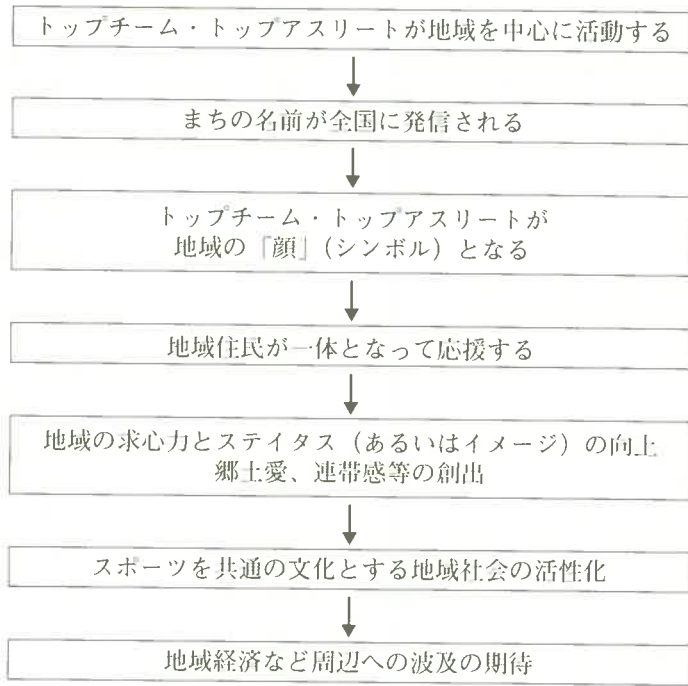 トップチーム・トップアスリートが地域を中心に活動する
まちの名前が全国に発信される
トップチーム・トップアスリートが
地域の「顔」(シンボル)となる
地域住民が一体となって応援する
地域の求心力とステイタス(あるいはイメージ)の向上
郷土愛、連帯感等の創出
スポーツを共通の文化とする地域社会の活性化
地域経済など周辺への波及の期待